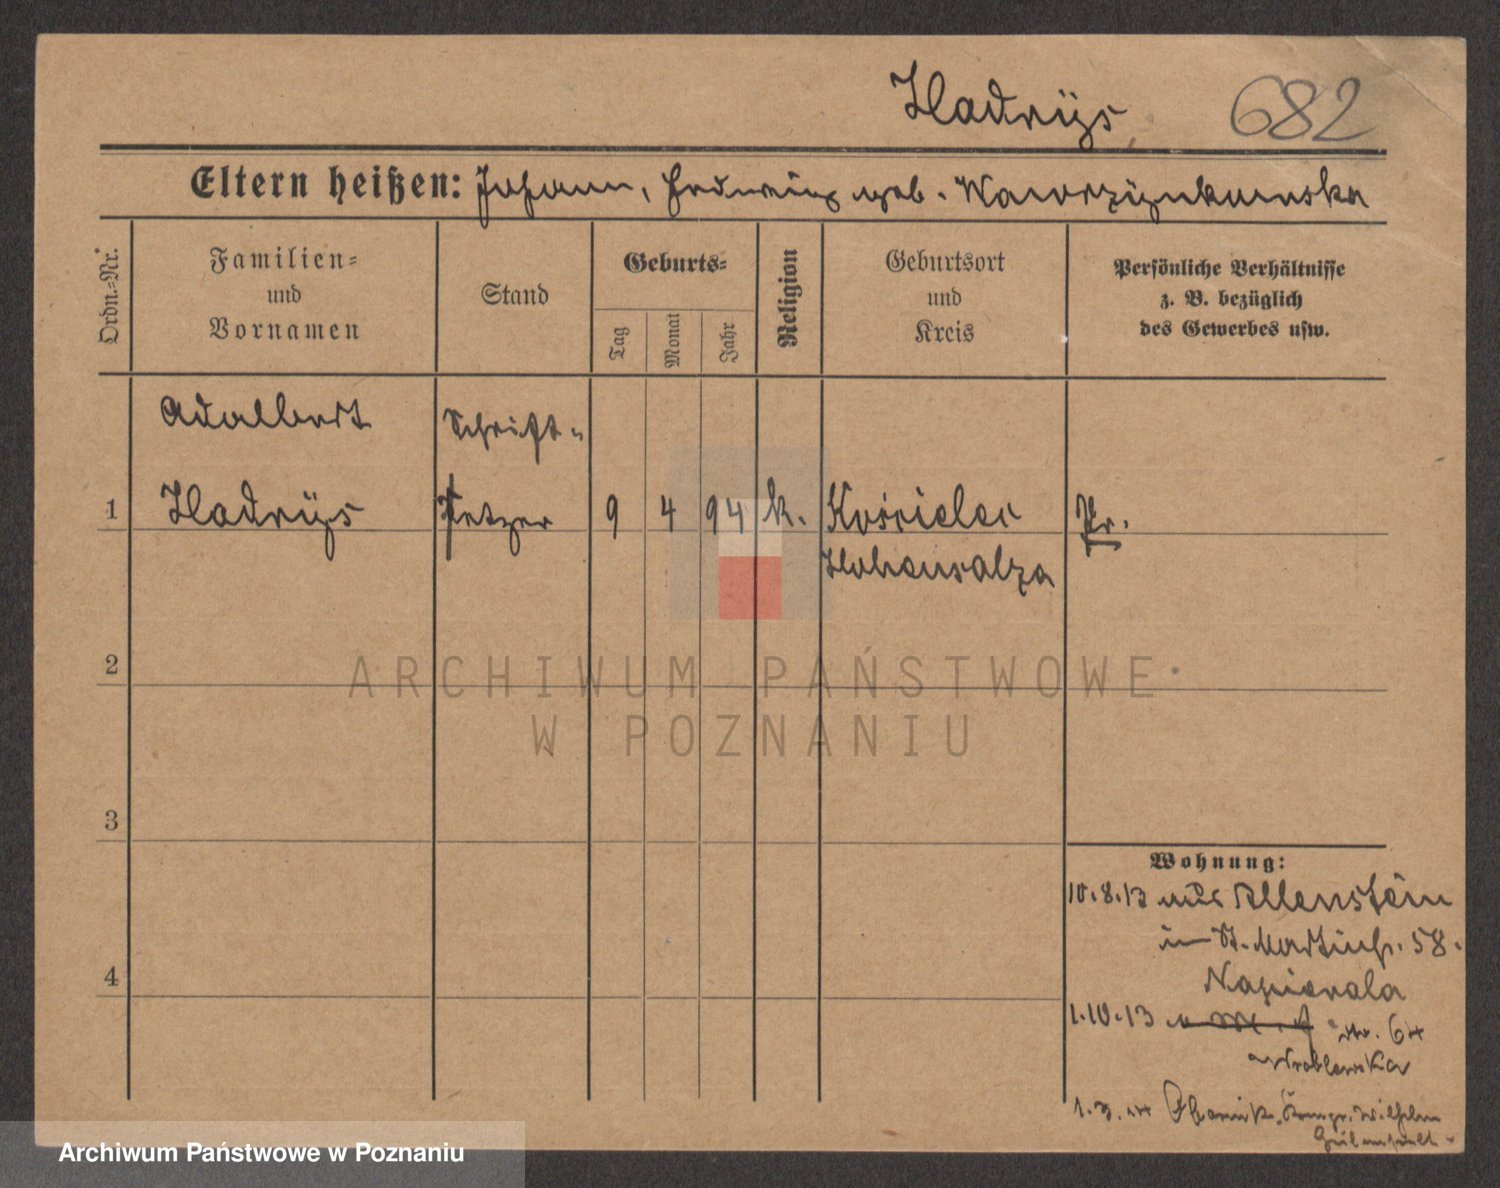 Hadryś
682
Eltern heißen: Johann, Hedwig geb. Wawrzynkowska
Ordn.-Nr.
Familien-
und
Vornamen
Stand
Geburts-
Tag
Monat
Jahr
Religion
Geburtsort
und
Kreis
Persönliche Verhältnisse
z. B. bezüglich
des Gewerbes usw.
Adalbert
Schrift-
1 Hadryś setzer 9 4 94 k. Kościelec Pr.
Hohensalza
2
3
4
Wohnung:
10.8.13 aus Allenstein
in St. Martinstr. 58.
Napierala
1.10.13 Nr. 64
Wroblewska
1.3.14 Wilhelm
ARCHIWUM PAŃSTWOWE
W POZNANIU
Archiwum Państwowe w Poznaniu